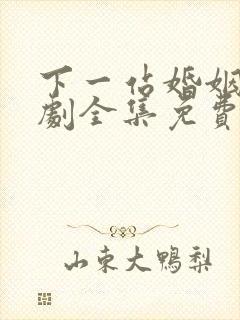 下一站婚姻
劇全集免費
山東大鴨梨